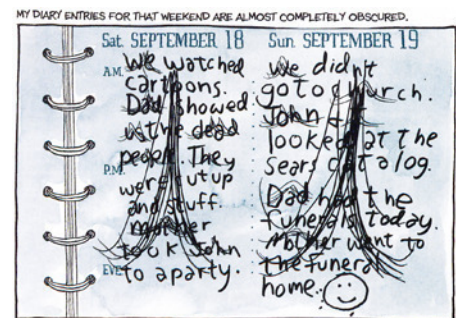 MY DIARY ENTRIES FOR THAT WEEKEND ARE ALMOST COMPLETELY OBSCURED.
Sat. SEPTEMBER 18
A.M.
We watched
cartoons.
Dad showed
us the dead
people. They
P.M.
were cut up
and stuff.
mother
took John
EVE.
to a party.
Sun. SEPTEMBER 19
We didn't
go to church.
John & I
looked at the
Sears catalog.
Dad had the
funerals today.
Mother went to
the funeral
home.